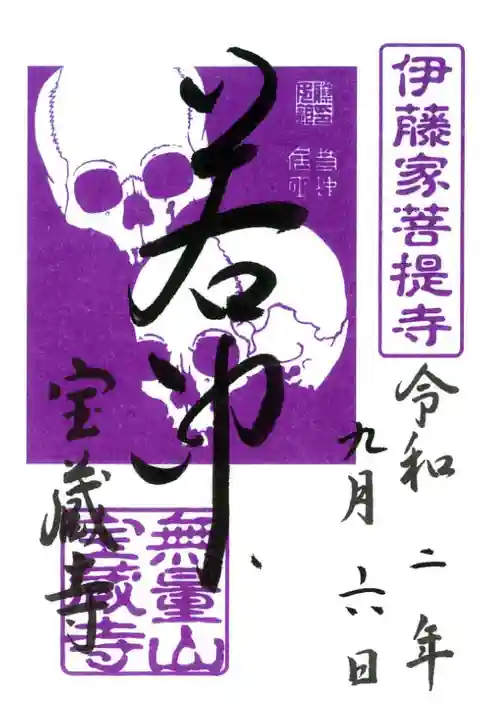 伊藤家菩提寺
令和二年
九月六日
若冲
宝蔵寺
無量山
宝蔵寺
若冲
居士